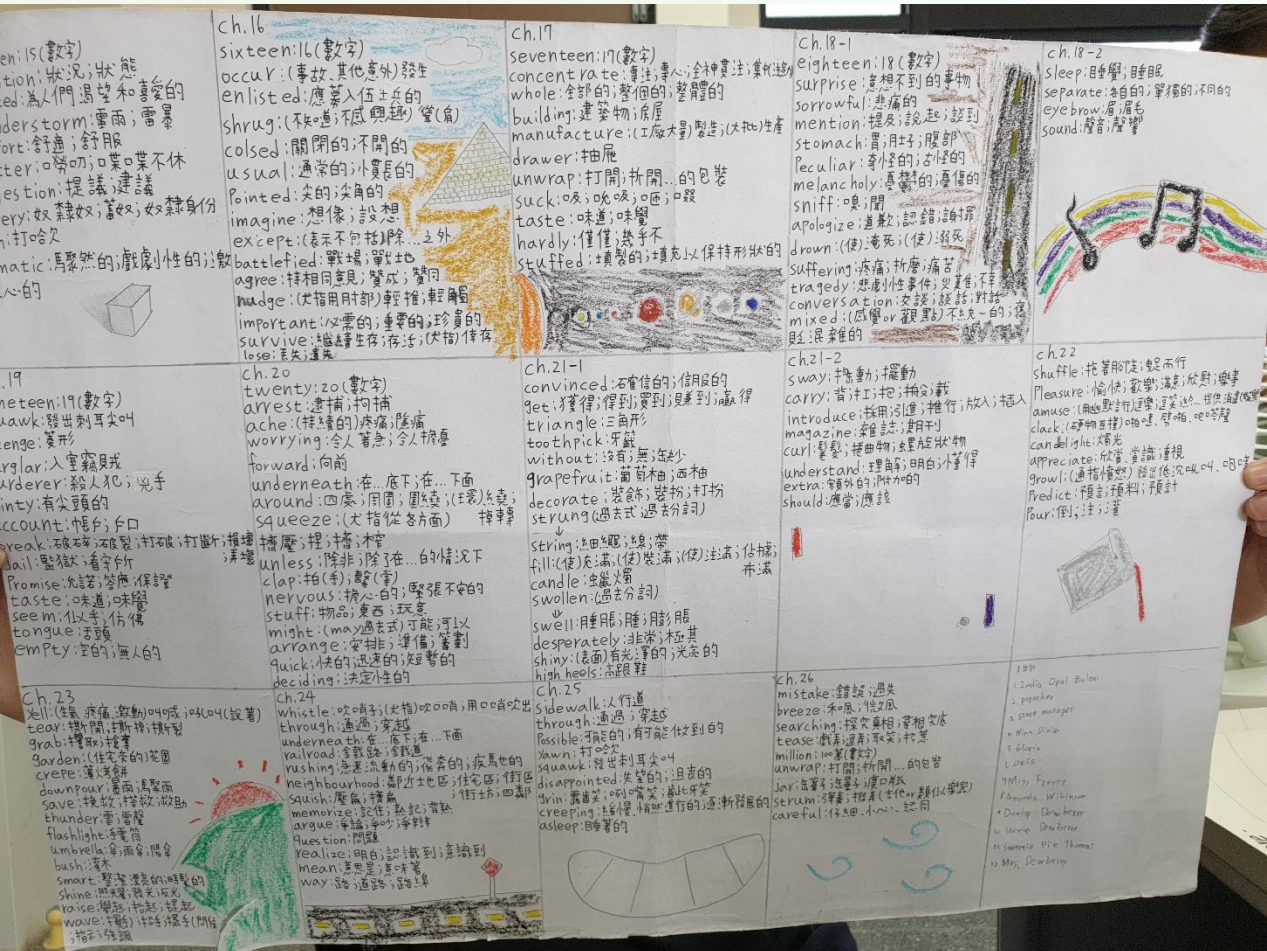 een:15(數字)
tion:狀況;狀態
ed:為人們渴望和喜愛的
nderstorm:雷雨;雷暴
fort:舒適;舒服
tter:嘮叨;喋喋不休
gestion:提議;建議
ery:奴隸奴;蓄奴;奴隸身份
n:打哈欠
matic:驟然的;戲劇性的;激
心的
ch.16
sixteen:16(數字)
occur:(事故、其他意外)發生
enlisted:應募入伍士兵的
shrug:(不知道;不感興趣)聳(肩)
colsed:關閉的;不開的
usual:通常的;慣長的
Pointed:尖的;尖角的
imagine:想像;設想
except:(表示不包括)除...之外
battlefied:戰場;戰士地
agree:持相同意見;贊成;贊同
nudge:(尤指用肘部)輕推;輕觸
important:必需的;重要的;珍貴的
survive:繼續生存;存活;(尤指)倖存
lose:丟失;遺失
ch.17
seventeen:17(數字)
concentrate:專注;專心;全神貫注;
whole:全部的;整個的;整體的
building:建築物;房屋
manufacture:(工廠大量)製造;(大批)生產
drawer:抽屜
unwrap:打開;折開...的包裝
suck:吸;吮吸;咂;啜
taste:味道;味覺
hardly:僅僅;幾乎不
stuffed:填製的;填充以保持形狀的
ch.18-1
eighteen:18(數字)
surprise:意想不到的事物
sorrowful:悲痛的
mention:提及;說起;談到
stomach:胃;肚子;腹部
Peculiar:奇怪的;古怪的
melancholy:憂鬱的;憂傷的
sniff:嗅;聞
apologize:道歉;認錯;謝罪
drown:(使)淹死;(使)溺死
suffering:疼痛;折磨;痛苦
tragedy:悲劇性事件;災難;不幸
conversation:交談;談話;對話
mixed:(感覺or觀點)不統一的;
混雜的
ch.18-2
sleep:睡覺;睡眠
separate:各自的;單獨的;不同的
eyebrow:眉;眉毛
sound:聲音;聲響
.19
neteen:19(數字)
uawk:發出刺耳尖叫
zenge:菱形
urglar:入室竊賊
urderer:殺人犯;兇手
inty:有尖頭的
ccount:帳戶;戶口
break:破碎;破裂;打破;打斷;損壞
;弄壞
Jail:監獄;看守所
Promise:允諾;答應;保證
taste:味道;味覺
seem:似乎;仿彿
tongue:舌頭
empty:空的;無人的
ch.20
twenty:20(數字)
arrest:逮捕;拘捕
ache:(持續的)疼痛;隱痛
worrying:令人著急;令人擔憂
forward:向前
underneath:在...底下;在...下面
around:四處;周圍;圍繞;(環)繞;
掉轉
squeeze:(尤指從各方面)
擠壓;捏;擠;榨
unless:除非;除了在...的情況下
clap:拍(手);鼓(掌)
nervous:擔心的;緊張不安的
stuff:物品;東西;玩意
might:(may過去式)可能;可以
arrange:安排;準備;籌劃
quick:快的;迅速的;短暫的
deciding:決定性的
ch.21-1
convinced:確信的;信服的
get:獲得;得到;買到;賺到;贏得
triangle:三角形
toothpick:牙籤
without:沒有;無;缺少
grapefruit:葡萄柚;西柚
decorate:裝飾;裝扮;打扮
strung(過去式;過去分詞)
↓
string:細繩;線;帶
fill:(使)充滿;(使)裝滿;(使)注滿;佔據;
布滿
candle:蠟燭
swollen:(過去分詞)
↓
swell:腫脹;腫;膨脹
desperately:非常;極其
shiny:(表面)有光澤的;光亮的
high heels:高跟鞋
ch.21-2
sway:搖動;擺動
carry:背;扛;抱;搬;載
introduce:採用;引進;推行;放入;插入
magazine:雜誌;期刊
curl:鬈髮;捲曲物;螺旋狀物
understand:理解;明白;懂得
extra:額外的;附加的
should:應當;應該
ch.22
shuffle:拖著腳走;蹉而行
Pleasure:愉快;歡樂;滿意;欣慰;樂事
amuse:
clack:(硬物互撞)
candlelight:燭光
appreciate:欣賞;賞識;重視
growl:(通指憤怒)發出低沉吼叫
Predict:預言;預料;預計
Pour:倒;注;灌
ch.23
Yell:(生氣 疼痛 激動)叫喊;
tear:撕開;撕掉;撕裂
grab:攫取;搶奪
garden:(住宅旁的)花園
crepe:薄烤餅
downpour:暴雨;驟雨
save:挽救;搭救;救助
thunder:雷;雷聲
flashlight:手電筒
umbrella:傘;雨傘;陽傘
bush:灌木
smart:整潔漂亮的;時髦的
shine:照耀;發光;反光
raise:舉起;抬起;提起
wave:揮手;招手;擺手(問候
;指示;強調
ch.24
whistle:吹哨子;(尤指)吹口哨;用口哨吹出
through:通過;穿越
underneath:在...底下;在...下面
railroad:鐵路;鐵道
rushing:急速流動的;飛奔的;疾馬也的
neighbourhood:鄰近土地區;住宅區;街區
;街坊;四鄰
squish:壓扁;擠扁
memorize:記住;熟記;背熟
argue:爭論;爭吵;爭辯
question:問題
realize:明白;認識到;意識到
mean:意思是;意味著
way:路;道路;路線
ch.25
sidewalk:人行道
through:通過;穿越
Possible:可能的;有可能做到的
Yawn:打哈欠
squawk:發出刺耳尖叫
disappointed:失望的;沮喪的
grin:露齒笑;咧嘴笑;齜牙笑
creeping:緩慢、悄然進行的;逐漸發展的
asleep:睡著的
ch.26
mistake:錯誤;過失
breeze:和風;微風
searching:探究真相;尋根究底
tease:戲弄;逗弄;取笑;招惹
million:100萬(數字)
unwrap:打開;折開...的包裝
Jar:
strum:
careful:仔細、小心、認同
1.India Opal Buloni
2. preacher
3. store manager
4. Winn Dixie
5. Gloria
6. Otis
7. Miss Franny
8. Amanda Wilkinson
9. Dunlap Dewberry
10. Stevie Dewberry
11. Sweetie Pie Thomas
12. Mrs. Dewberry